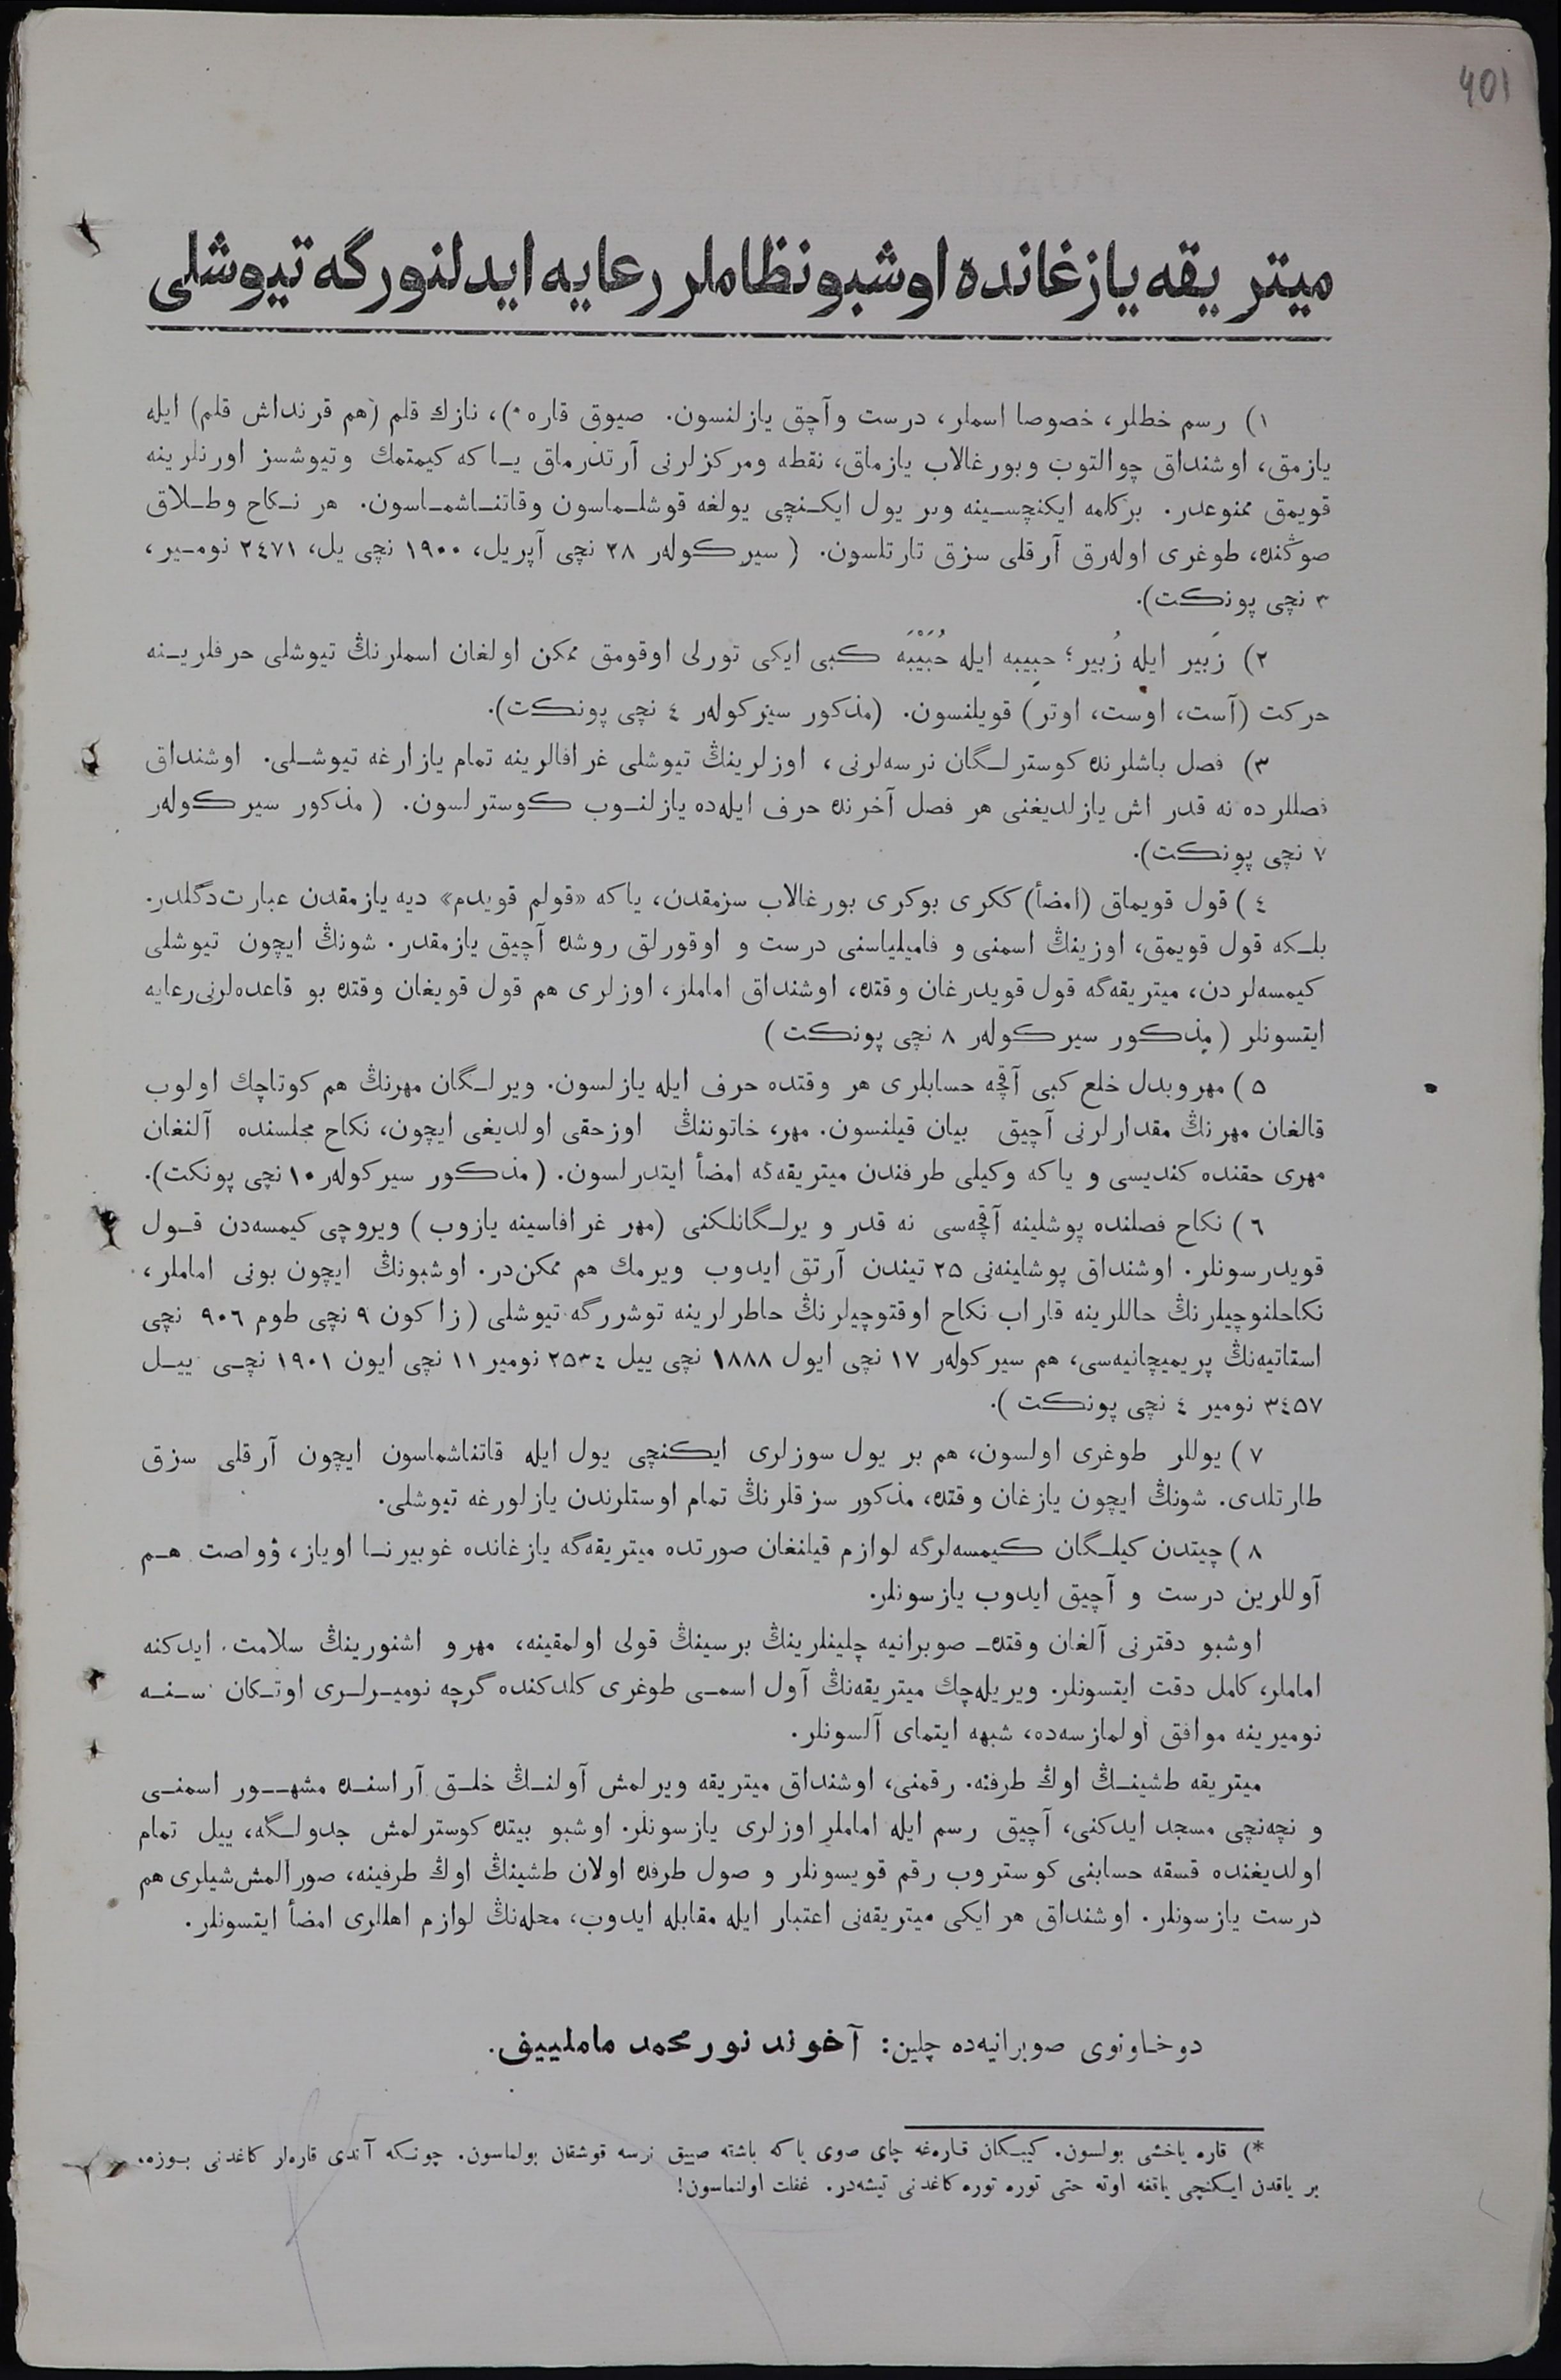 401
ميتريقه يازغانده اوشبو نظاملر رعايه ايدلنورگه تيوشلی
١) رسم خطلر، خصوصا اسملر، درست وآچق يازلنسون. صيوق قاره *)، نازك قلم (هم قرنداش قلم) ايله
يازمق، اوشنداق چوالتوب وبورغالاب يازماق، نقطه ومركزلرنی آرتدرماق يـا كه كيمتمك وتيوشسز اورنلرينه
قويمق ممنوعدر. بركلمه ايكنچسـينه وبر يول ايكـنچی يولغه قوشلـماسون وقاتنـاشمـاسون. هر نـكاح وطـلاق
صوڭنده، طوغری اوله‌رق آرقلی سزق تارتلسون. (سيركوله‌ر ٢٨ نچی آپريل، ١٩٠٠ نچی يل، ٢٤٧١ نومـير،
٣ نچی پونكت).
٢) زَبير ايله زُبير؛ حبِيبه ايله حُبَيْبَه كبی ايكی تورلی اوقومق ممكن اولغان اسملرنڭ تيوشلی حرفلريـنه
حركت (آست، اوست، اوتر) قويلنسون. (مذكور سيركوله‌ر ٤ نچی پونكت).
٣) فصل باشلرنده كوسترلـگان نرسه‌لرنی، اوزلرينڭ تيوشلی غرافالرينه تمام يازارغه تيوشـلی. اوشنداق
فصللرده نه قدر اش يازلديغنی هر فصل آخرنده حرف ايله‌ده يازلنـوب كوسترلسون. (مذكور سيركوله‌ر
٧ نچی پونكت).
٤) قول قويماق (امضأ) ككری بوكری بورغالاب سزمقدن، ياكه «قولم قويدم» ديه يازمقدن عبارت‌دگلدر.
بلـكه قول قويمق، اوزينڭ اسمنی و فاميلياسنی درست و اوقورلق روشده آچيق يازمقدر. شونڭ ايچون تيوشلی
كيمسه‌لردن، ميتريقه‌گه قول قويدرغان وقتده، اوشنداق اماملر، اوزلری هم قول قويغان وقتده بو قاعده‌لرنی رعايه
ايتسونلر (مذكور سيركوله‌ر ٨ نچی پونكت)
٥) مهر وبدل خلع كبی آقچه حسابلری هر وقتده حرف ايله يازلسون. ويرلـگان مهرنڭ هم كوتاچك اولوب
قالغان مهرنڭ مقدارلرنی آچيق بيان قيلنسون. مهر، خاتوننڭ اوزحقی اولديغی ايچون، نكاح مجلسنده آلنغان
مهری حقنده كنديسی و ياكه وكيلی طرفندن ميتريقه‌گه امضأ ايتدرلسون. (مذكور سيركوله‌ر ١٠ نچی پونكت).
٦) نكاح فصلنده پوشلينه آقچه‌سی نه قدر ويرلـگانلكنی (مهر غرافاسينه يازوب) ويروچی كيمسه‌دن قـول
قويدرسونلر. اوشنداق پوشلينه‌نی ٢٥ تيندن آرتق ايدوب ويرمك هم ممكن‌در. اوشبونڭ ايچون بونی اماملر،
نكاحلنوچيلرنڭ حاللرينه قاراب نكاح اوقتوچيلرنڭ خاطرلرينه توشررگه تيوشلی (زاكون ٩ نچی طوم ٩٠٦ نچی
استاتيه‌نڭ پريميچانيه‌سی، هم سيركوله‌ر ١٧ نچی ايول ١٨٨٨ نچی ييل ٢٥٣٤ نومير ١١ نچی ايون ١٩٠١ نچـی ييـل
٣٤٥٧ نومير ٤ نچی پونكت).
٧) يوللر طوغری اولسون، هم بر يول سوزلری ايكنچی يول ايله قاتناشماسون ايچون آرقلی سزق
طارتلدی. شونڭ ايچون يازغان وقتده، مذكور سزقلرنڭ تمام اوستلرندن يازلورغه تيوشلی.
٨) چيتدن كيلـگان كيمسه‌لرگه لوازم قيلنغان صورتده ميتريقه‌گه يازغانده غوبيرنـا اوياز، ۋواصت هـم
آوللرين درست و آچيق ايدوب يازسونلر.
اوشبو دفترنی آلغان وقتده صوبرانيه چلينلرينڭ برسينڭ قولی اولمقينه، مهر و اشنورينڭ سلامت ايدكنه
اماملر، كامل دقت ايتسونلر. ويريله‌چك ميتريقه‌نڭ آول اسمـی طوغری كلدكنده گرچه نوميـرلـری اوتـكان سـنـه
نوميرينه موافق اولمازسه‌ده، شبهه ايتمای آلسونلر.
ميتريقه طشينـڭ اوڭ طرفنه. رقمنی، اوشنداق ميتريقه ويرلمش آولنـڭ خلـق آراسنـده مشهـور اسمنـی
و نچه‌نچی مسجد ايدكنی، آچيق رسم ايله اماملر اوزلری يازسونلر. اوشبو بيتده كوسترلمش جدولـگه، ييل تمام
اولديغنده قسقه حسابنی كوستروب رقم قويسونلر و صول طرفده اولان طشينڭ اوڭ طرفينه، صورالمش شيلری هم
درست يازسونلر. اوشنداق هر ايكی ميتريقه‌نی اعتبار ايله مقابله ايدوب، محله‌نڭ لوازم اهللری امضأ ايتسونلر.
دوخاونوی صوبرانيه‌ده چلين: آخوند نورمحمد مامليييف.
*) قاره ياخشی بولسون. كيبـكان قاره‌غه چای صوی ياكه باشته صييق نرسه قوشقان بولماسون. چونـكه آندی قاره‌لر كاغدنی بـوزه،
بر ياقدن ايكنچی ياقغه اوته حتی توره توره كاغدنی تيشه‌در. غفلت اولنماسون!